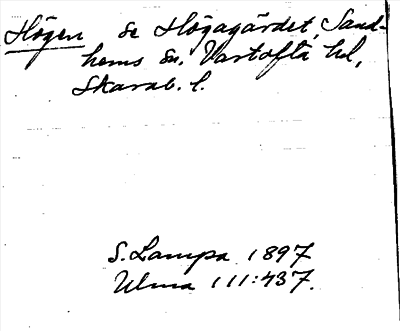 Högen se Högagärdet, Sand-
hems sn. Vartofta hd,
Skarab. l.
S. Lampa 1897
Ulma 111:437.